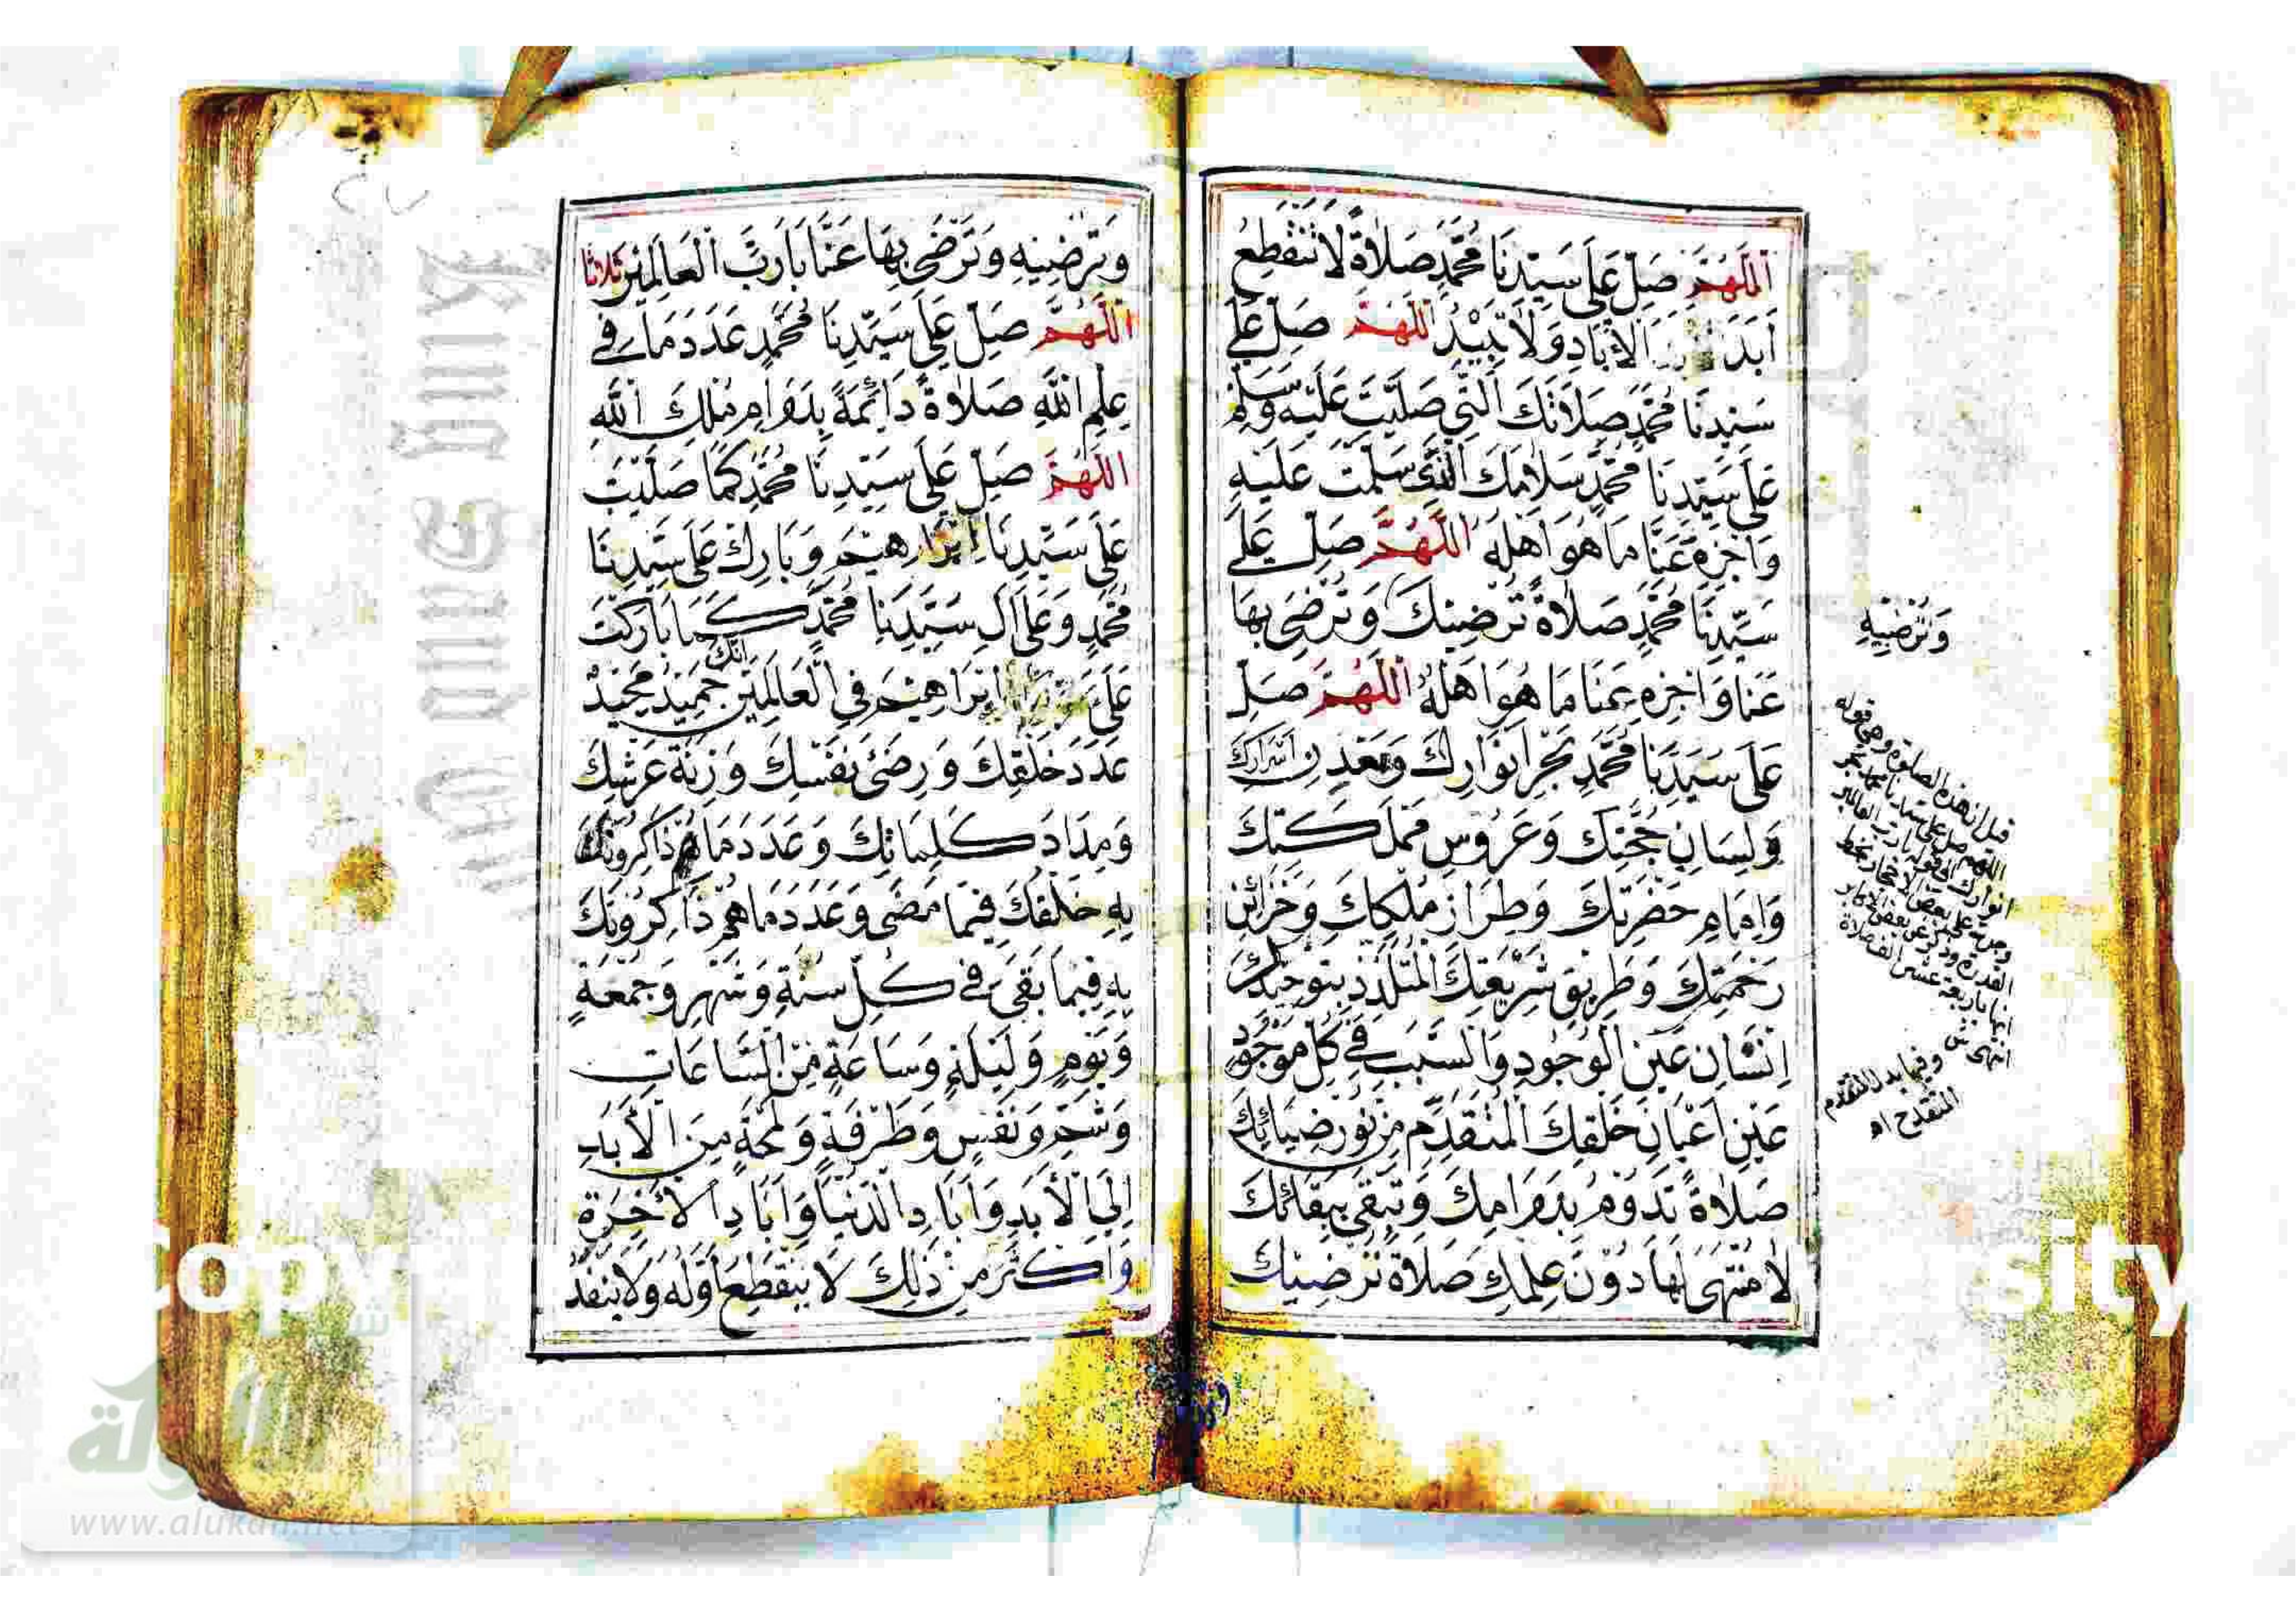 اَللّٰهُمَّ صَلِّ عَلَى سَيِّدِنَا مُحَمَّدٍ صَلَاةً لَا تَنْقَطِعُ
اَبَدَ الْاٰبَادِ وَلَا تَبِيْدُ اَللّٰهُمَّ صَلِّ عَلَى
سَيِّدِنَا مُحَمَّدٍ صَلَاتَكَ الَّتِي صَلَّيْتَ عَلَيْهِ وَسَلِّمْ
عَلَى سَيِّدِنَا مُحَمَّدٍ سَلَامَكَ الَّذِى سَلَّمْتَ عَلَيْهِ
وَاجْزِهِ عَنَّا مَا هُوَ اَهْلُهُ اَللّٰهُمَّ صَلِّ عَلَى
سَيِّدِنَا مُحَمَّدٍ صَلَاةً تُرْضِيْكَ وَتَرْضَى بِهَا
عَنَّا وَاجْزِهِ عَنَّا مَا هُوَ اَهْلُهُ اَللّٰهُمَّ صَلِّ
عَلَى سَيِّدِنَا مُحَمَّدٍ بَحْرِ اَنْوَارِكَ وَمَعْدِنِ اَسْرَارِكَ
وَلِسَانِ حُجَّتِكَ وَعَرُوْسِ مَمْلَكَتِكَ
وَاِمَامِ حَضْرَتِكَ وَطِرَازِ مُلْكِكَ وَخَزَائِنِ
رَحْمَتِكَ وَطَرِيْقِ شَرِيْعَتِكَ الْمُتَلَذِّذِ بِتَوْحِيْدِكَ
اِنْسَانِ عَيْنِ الْوُجُوْدِ وَالسَّبَبِ فِي كُلِّ مَوْجُوْدٍ
عَيْنِ اَعْيَانِ خَلْقِكَ الْمُتَقَدِّمِ مِنْ نُوْرِ ضِيَائِكَ
صَلَاةً تَدُوْمُ بِدَوَامِكَ وَتَبْقَى بِبَقَائِكَ
لَا مُنْتَهَى لَهَا دُوْنَ عِلْمِكَ صَلَاةً تُرْضِيْكَ
وَتُرْضِيْهِ
قيل ان هذه الصلوة وهى قوله
اللهم صل على سيدنا محمد بحر
انوارك الى قوله يا رب العالمين
القدرة وذكر عن بعض الاكابر
انها باربعة عشر الف صلاة
انتهى
وَتُرْضِيْهِ وَتَرْضَى بِهَا عَنَّا يَا رَبَّ الْعَالَمِيْنَ ثلاثا
اَللّٰهُمَّ صَلِّ عَلَى سَيِّدِنَا مُحَمَّدٍ عَدَدَ مَا فِي
عِلْمِ اللّٰهِ صَلَاةً دَائِمَةً بِدَوَامِ مُلْكِ اللّٰهِ
اَللّٰهُمَّ صَلِّ عَلَى سَيِّدِنَا مُحَمَّدٍ كَمَا صَلَّيْتَ
عَلَى سَيِّدِنَا اِبْرَاهِيْمَ وَبَارِكْ عَلَى سَيِّدِنَا
مُحَمَّدٍ وَعَلَى اٰلِ سَيِّدِنَا مُحَمَّدٍ كَمَا بَارَكْتَ
عَلَى اِبْرَاهِيْمَ فِي الْعَالَمِيْنَ اِنَّكَ حَمِيْدٌ مَجِيْدٌ
عَدَدَ خَلْقِكَ وَرِضَى نَفْسِكَ وَزِنَةَ عَرْشِكَ
وَمِدَادَ كَلِمَاتِكَ وَعَدَدَ مَا ذَاكِرُوْنَكَ
بِهِ خَلْقُكَ فِيْمَا مَضَى وَعَدَدَ مَا هُمْ ذَاكِرُوْنَكَ
بِهِ فِيْمَا بَقِيَ فِي كُلِّ سَنَةٍ وَشَهْرٍ وَجُمُعَةٍ
وَيَوْمٍ وَلَيْلَةٍ وَسَاعَةٍ مِنَ السَّاعَاتِ
وَشَمٍّ وَنَفَسٍ وَطَرْفَةٍ وَلَمْحَةٍ مِنَ الْاَبَدِ
اِلَى الْاَبَدِ وَاٰبَادِ الدُّنْيَا وَاٰبَادِ الْاٰخِرَةِ
وَاَكْثَرَ مِنْ ذٰلِكَ لَا يَنْقَطِعُ اَوَّلُهُ وَلَا يَنْفَدُ
Copy
sity
الألوكة
www.alukah.net